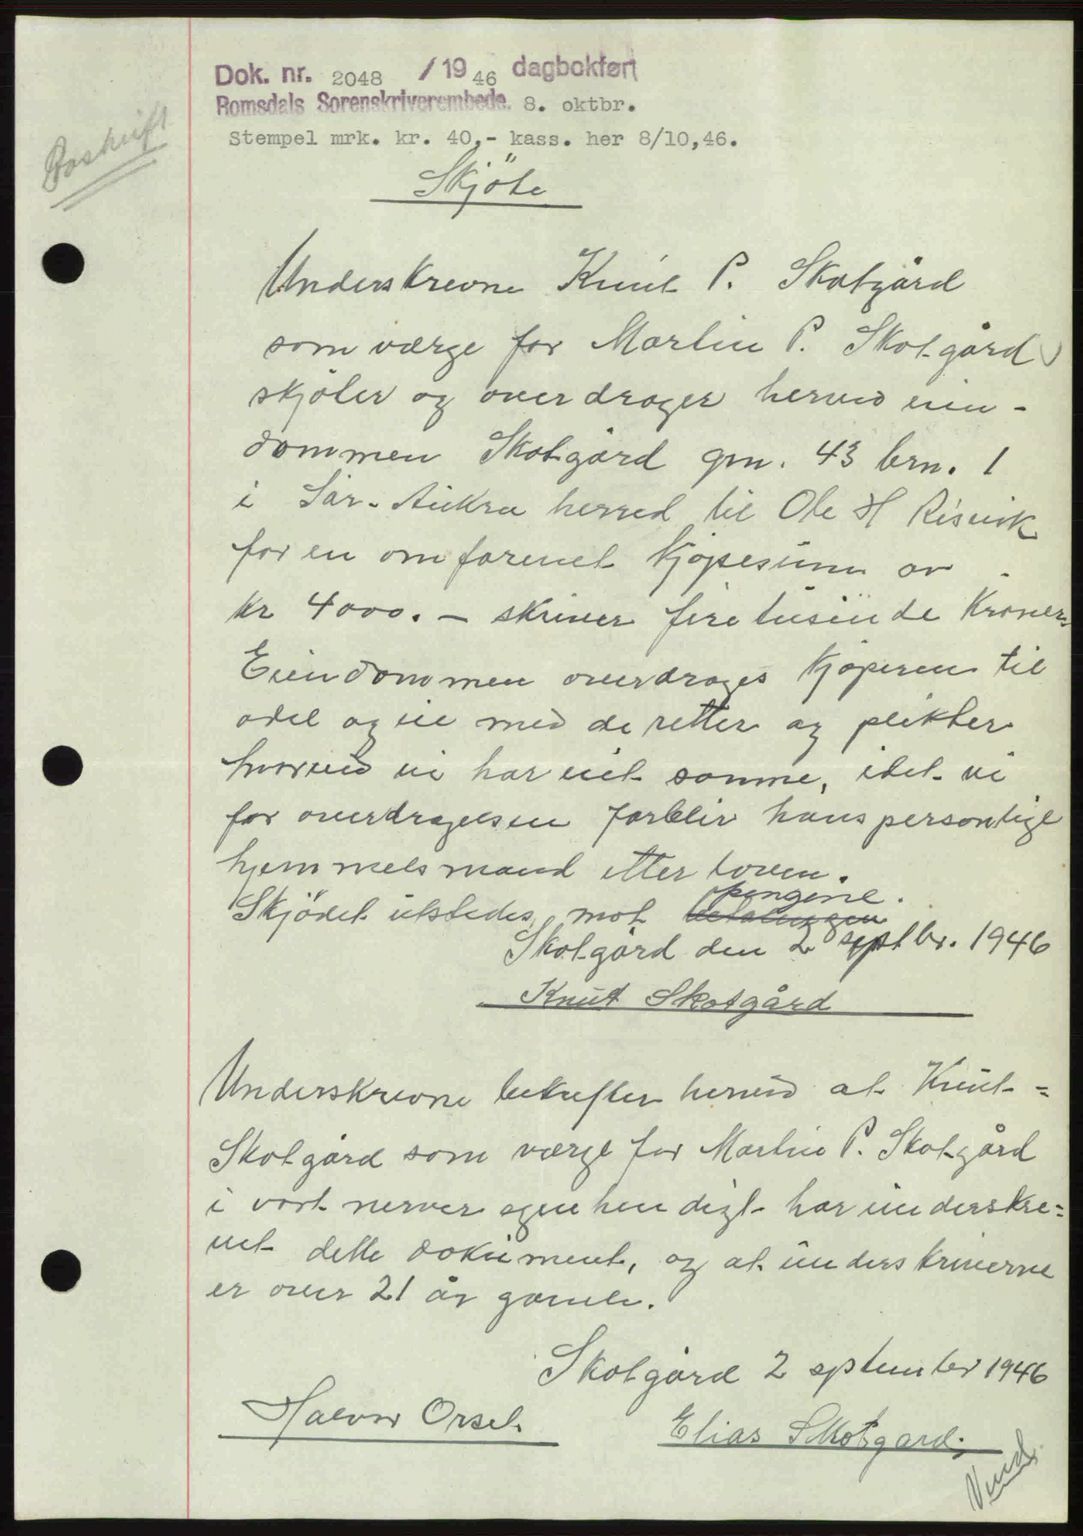 Dok. nr. 2048 / 19 46 dagbokført
Romsdals Sorenskriverembede. 8. oktbr.
Stempel mrk. kr. 40,- kass. her 8/10,46.
Skjöte
Underskrevne Knut P. Skotgård
som værge for Martin P. Skotgård
skjöter og overdrager herved eien-
dommen Skotgård grn. 43 brn. 1
i Sör-Aukra herred til Ole H Risvik
for en omforenet kjöpesum av
kr 4000.- skriver firetusinde kroner.
Eiendommen overdrages kjöperen til
odel og eie med de retter og plikter
hvorved vi har eiet samme, idet vi
for overdragelsen forblir hans personlige
hjemmelsmand etter loven.
pengene.
Skjödet utstedes mot betalingen
Skotgård den 2 septbr. 1946
Knut Skotgård
Underskrevne bekrefter herved at Knut=
Skotgård som værge for Martin P. Skotgård
i vort nerver egenhendigt har underskre=
vet dette dokument, og at underskriverne
er over 21 år gamle.
Skotgård 2 september 1946
Halvor Orset
Elias Skotgard.
Vend.